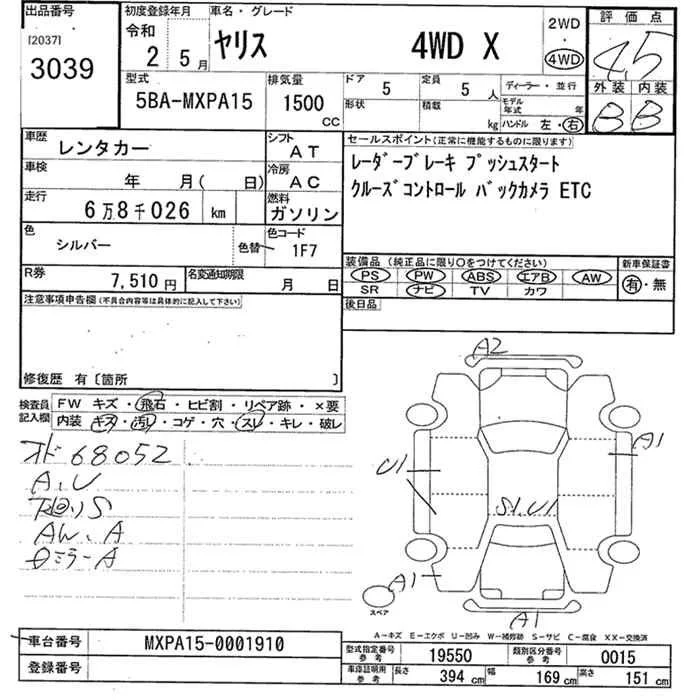 出品番号
[2037]
3039
初度登録年月
令和
2 5月
車名・グレード
ヤリス 4WD X
2WD
・
4WD
評価点
4.5
外装 内装
B B
型式
5BA-MXPA15
排気量
1500
CC
ドア
5
定員
5 人
形状
積載
kg
ディーラー・並行
モデル年式 年
ハンドル 左・右
車歴
レンタカー
シフト
AT
車検
年 月( 日)
冷房
AC
走行
6万8千026 km
燃料
ガソリン
色
シルバー
色替
色コード
1F7
R券
7,510円
名変通知期限
月 日
セールスポイント(正常に機能するものに限ります)
レーダーブレーキ プッシュスタート
クルーズコントロール バックカメラ ETC
装備品(純正品に限り○をつけてください)
PS PW ABS エアB AW
SR ナビ TV カワ
新車保証書
有・無
後日品
注意事項申告欄(不具合内容等は具体的に記入して下さい)
修復歴 有〔箇所 〕
検査員記入欄
FW キズ・飛石・ヒビ割・リペア跡・×要
内装 キズ・汚レ・コゲ・穴・スレ・キレ・破レ
オド 68052
A,U
下回りS
AW,A
ロミラーA
A2
A1
U1
S1,U1
A1
A1
スペア
A−キズ E−エクボ U−凹み W−補修跡 S−サビ C−腐食 XX−交換済
車台番号
MXPA15-0001910
登録番号
型式指定番号 参考
19550
類別区分番号 参考
0015
車庫証明用 参考
長さ 394 cm
幅 169 cm
高さ 151 cm